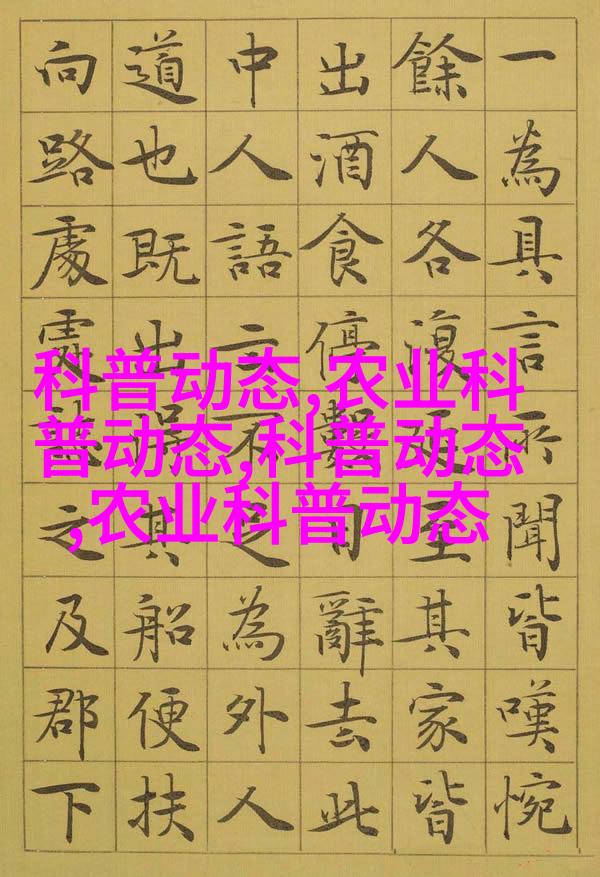 一為具言所聞皆嘆惋
餘人各復延至其家皆
出酒食停數日辭去此
中人語云不足為外人
道也既出得其船便扶
向路處處誌之及郡下
科普动态,农业科
普动态,科普动态
,农业科普动态